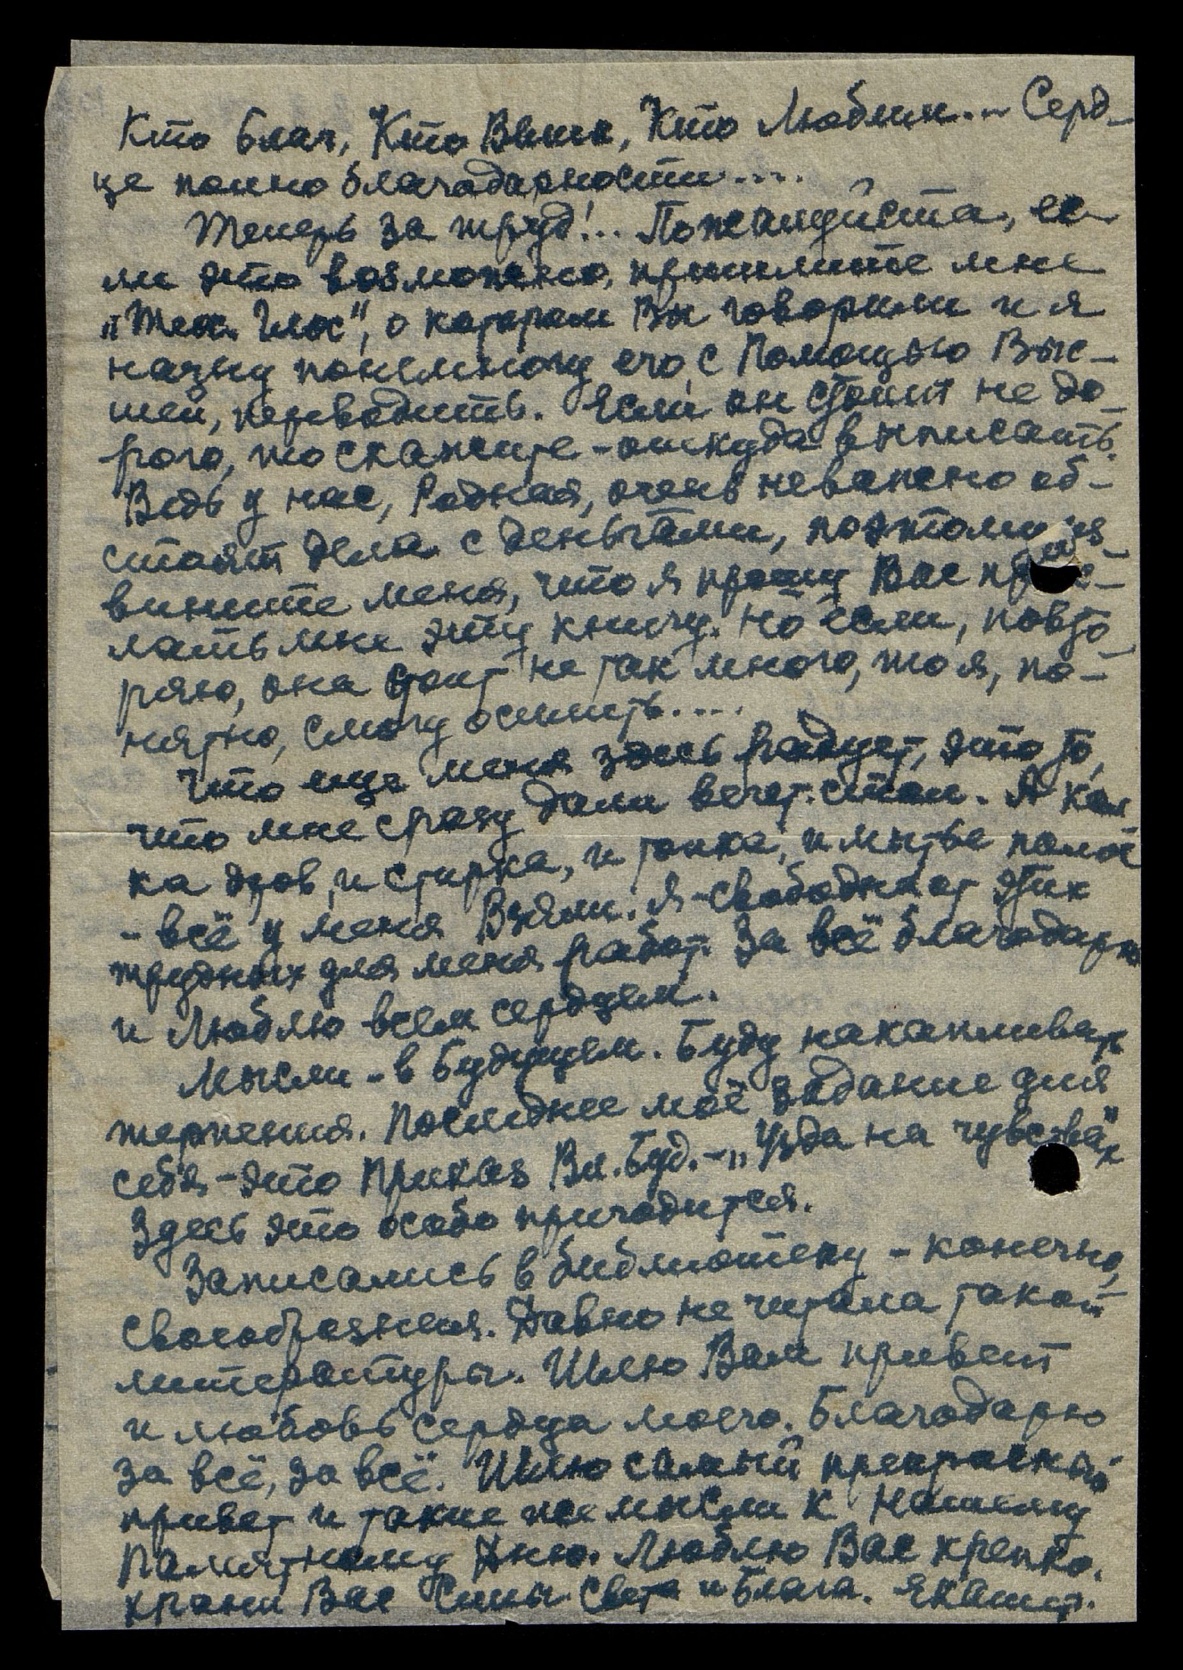 Кто благ, Кто Выше, Кто Любим... Серд-
це полно благодарности....
Теперь за труд!.. Пожалуйста, ес-
ли это возможно, пришлите мне
о котором Вы говорили и я
начну понемногу его, с Помощью Выс-
шей, переводить. Если он стоит не до-
рого, то скажите - откуда выписать.
Ведь у нас, Родная, очень неважно об-
стоят дела с деньгами, поэтому из-
вините меня, что я прошу Вас прис-
лать мне эту книгу. Но если, повто-
ряю, она стоит не так много, то я, по-
нятно, смогу осилить....
Что еще меня здесь радует, это то,
что мне сразу дали вегет. стол. А кол
ка дров, и стирка, и топка, и мытье полов
- всё у меня Взяли. Я - свободна от этих
трудных для меня работ. За всё благодарю
и Люблю всем сердцем.
Мысли - в Будущем. Буду накапливать
терпения. Последнее моё задание для
себя - это Приказ Вл. Буд. - „Узда на чувствах"
Здесь это особо пригодится.
Записались в библиотеку - конечно,
своеобразная. Давно не читала такой
литературы. Шлю Вам привет
и любовь сердца моего. Благодарю
за всё, за всё. Шлю самый прекрасный
привет и такие же мысли к Нашему
Памятному Дню. Люблю Вас крепко.
Храни Вас Силы Света и Блага.